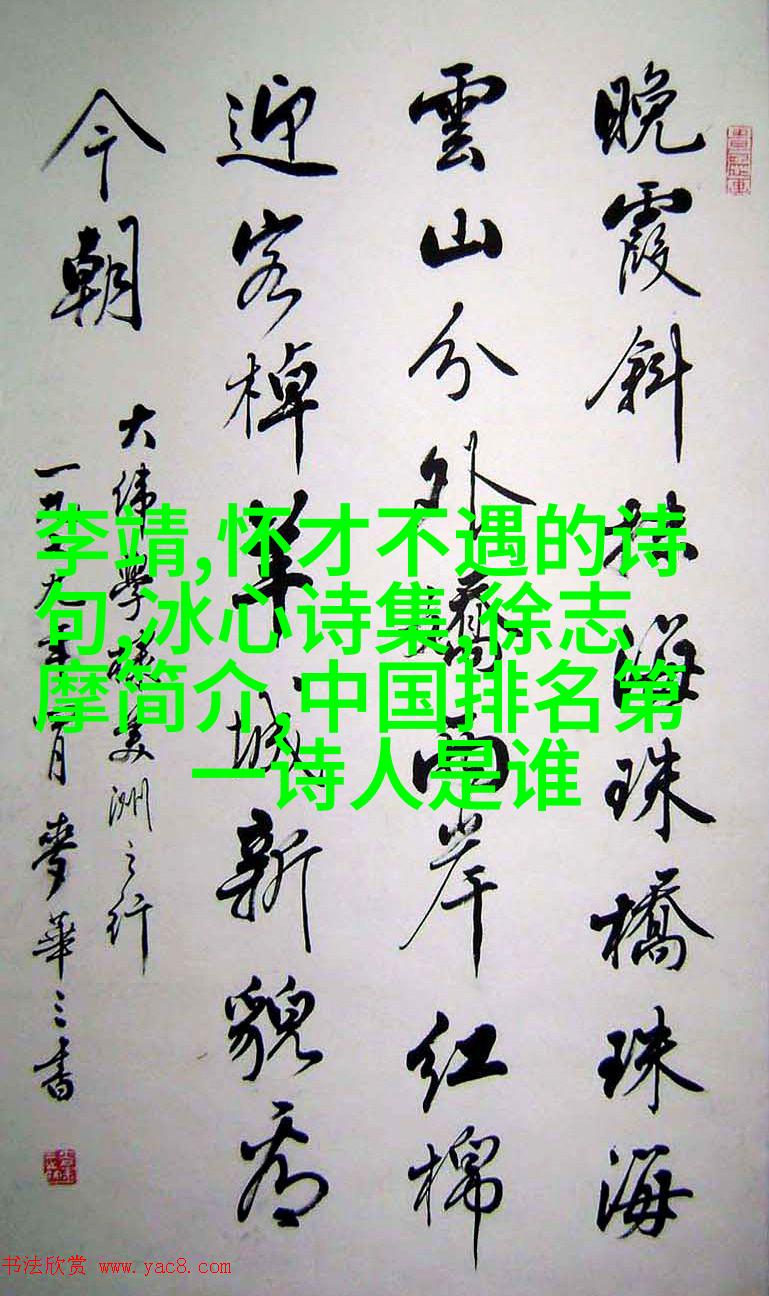 晚霞斜抹海珠橋珠海
雲山分外嬌兩岸紅棉
迎客棹羊城新貌看
今朝
大緯學棣美洲之行
一九九年月麥華三書
李靖,怀才不遇的诗
句,冰心诗集,徐志
摩简介,中国排名第
一诗人是谁
书法欣赏 www.yac8.com